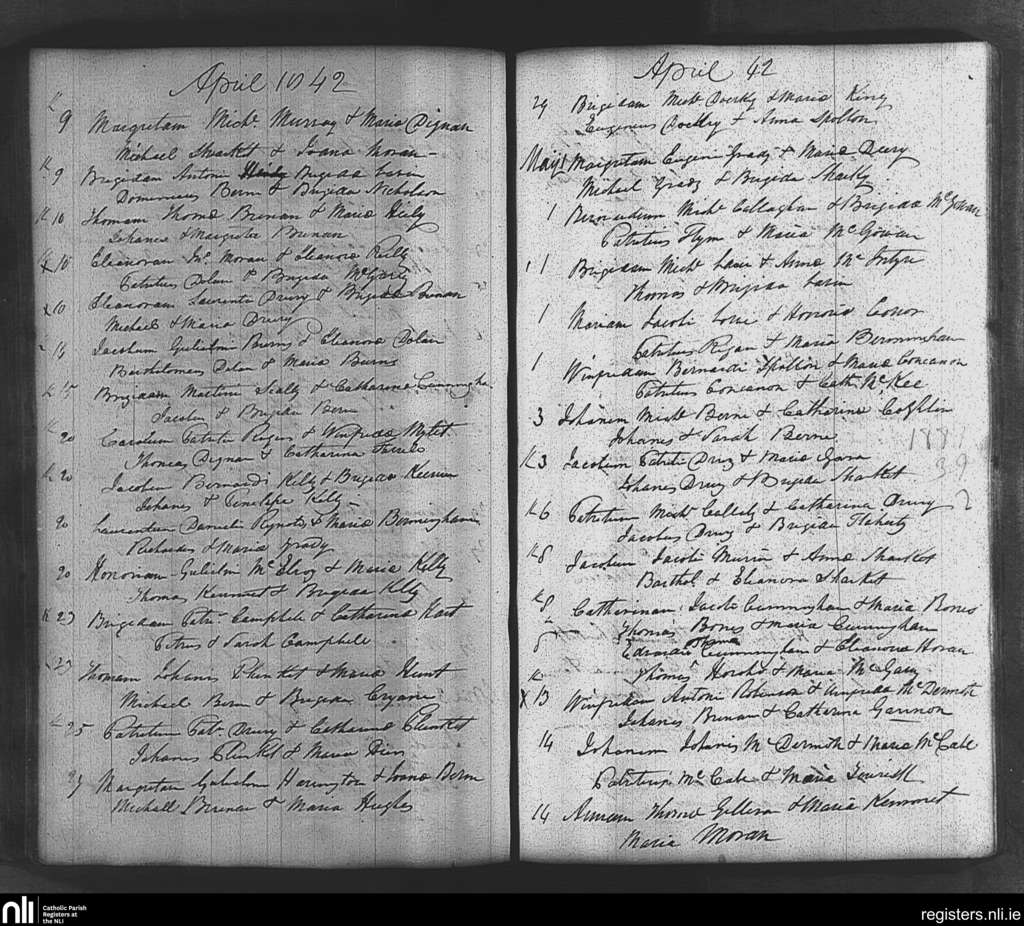 April 1842
K
9 Margretam Michl. Murray & Maria Dignan
Michael Sharket & Joana Moran
K 9 Brigidam Antoni Brigida
Dominicus Berne & Brigida Nicholson
K 10 Thomam Thoma Brenan & Maria Hely
Johanes & Margreta Brenan
K 10 Eleanoram Ml. Moran & Eleanora Reilly
Patritius Dolan & Brigida McGarry
x 10 Eleanoram Laurenti Drury & Brigida Brenan
Michael & Maria Drury
14 Jacobum Gulielmi Burns & Eleanora Dolan
Bartholomeus Dolan & Maria Burns
K 15 Brigidam Martini Scally & Catharina Cunningham
Jacobus & Brigida Berne
K 20 Carolum Patriti Rogers & Winfrida
Thomas Dignan & Catharina Farrell
K 20 Jacobum Bernardi Kelly & Brigida Keenan
Johanes & Penelepe Kelly
20 Laurentium Danielis & Maria Bermingham
Richardus & Maria Grady
20 Honoriam Gulielmi McElroy & Maria Kelly
Thomas & Brigida Klly
K 23 Brigidam Patri. Campbele & Catharina
Petrus & Sarah Campbele
23 Thomam Johanis Plunket & Maria Hunt
Michael Bern & Brigida
K 25 Patritum Pat. Drury & Catharina Plunket
Johanes Plunket & Maria
27 Margretam Gulielmi Harington & Joana Berne
Michall Brenan & Maria Hughes
April 42
29 Brigidam Michl. Doorley & Maria King
Eugenius Doolley & Anna Spolton
May 1 Margretam Eugeni Grady & Maria Deery
Michael Grady & Brigida Sharky
1 Bernardum Michl Callaghan & Brigida McGowan
Patritius Flyn & Maria McGowan
1 Brigidam Michl & Anna McIntyre
Thomas & Brigida
1 Mariam Jacobi & Honoria Conor
Patritius Regan & Maria Bermingham
1 Winfridam Bernardi Spolton & Maria Concanon
Patritius Concanon & Cath. McKee
3 Johanem Michl. Berne & Catharina Coghlin
Johanes & Sarah Berne
1881
39
K 3 Jacobum Patriti Drury & Maria Gara
Johanes Drury & Brigida Sharket
2
K 6 Patritium Michl. & Catharina Drury
Jacobus Drury & Brigida Flaherty
K 8 Jacobum Jacobi & Anna Sharket
Barthol & Eleanora Sharket
K 8 Catharinam Jacobi Cunningham & Maria Bones
Thomas Bones & Maria Cunningham
8 Thoma Cunningham & Eleanora Horan
Thomas & Maria McGary
K
x 13 Winfridam Antoni Robinson & Winfrida McDermott
Johanes Brenan & Catherine Gannon
14 Johanem Johanis McDermott & Maria McCabe
Patritius McCabe & Maria
14 Annam Thoma & Maria
Maria Moran
nli
Catholic Parish
Registers at
the NLI
registers.nli.ie